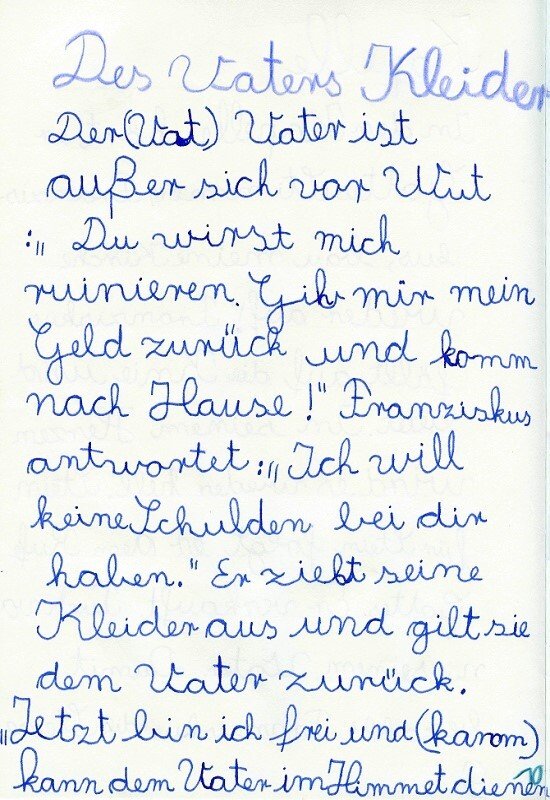 Des Vaters Kleider
Der (Vat) Vater ist
außer sich vor Wut
:„ Du wirst mich
ruinieren. Gib mir mein
Geld zurück und komm
nach Hause!" Franziskus
antwortet:„Ich will
keine Schulden bei dir
haben." Er zieht seine
Kleider aus und gilt sie
dem Vater zurück.
„Jetzt bin ich frei und (karom)
kann dem Vater im Himmel dienen
10